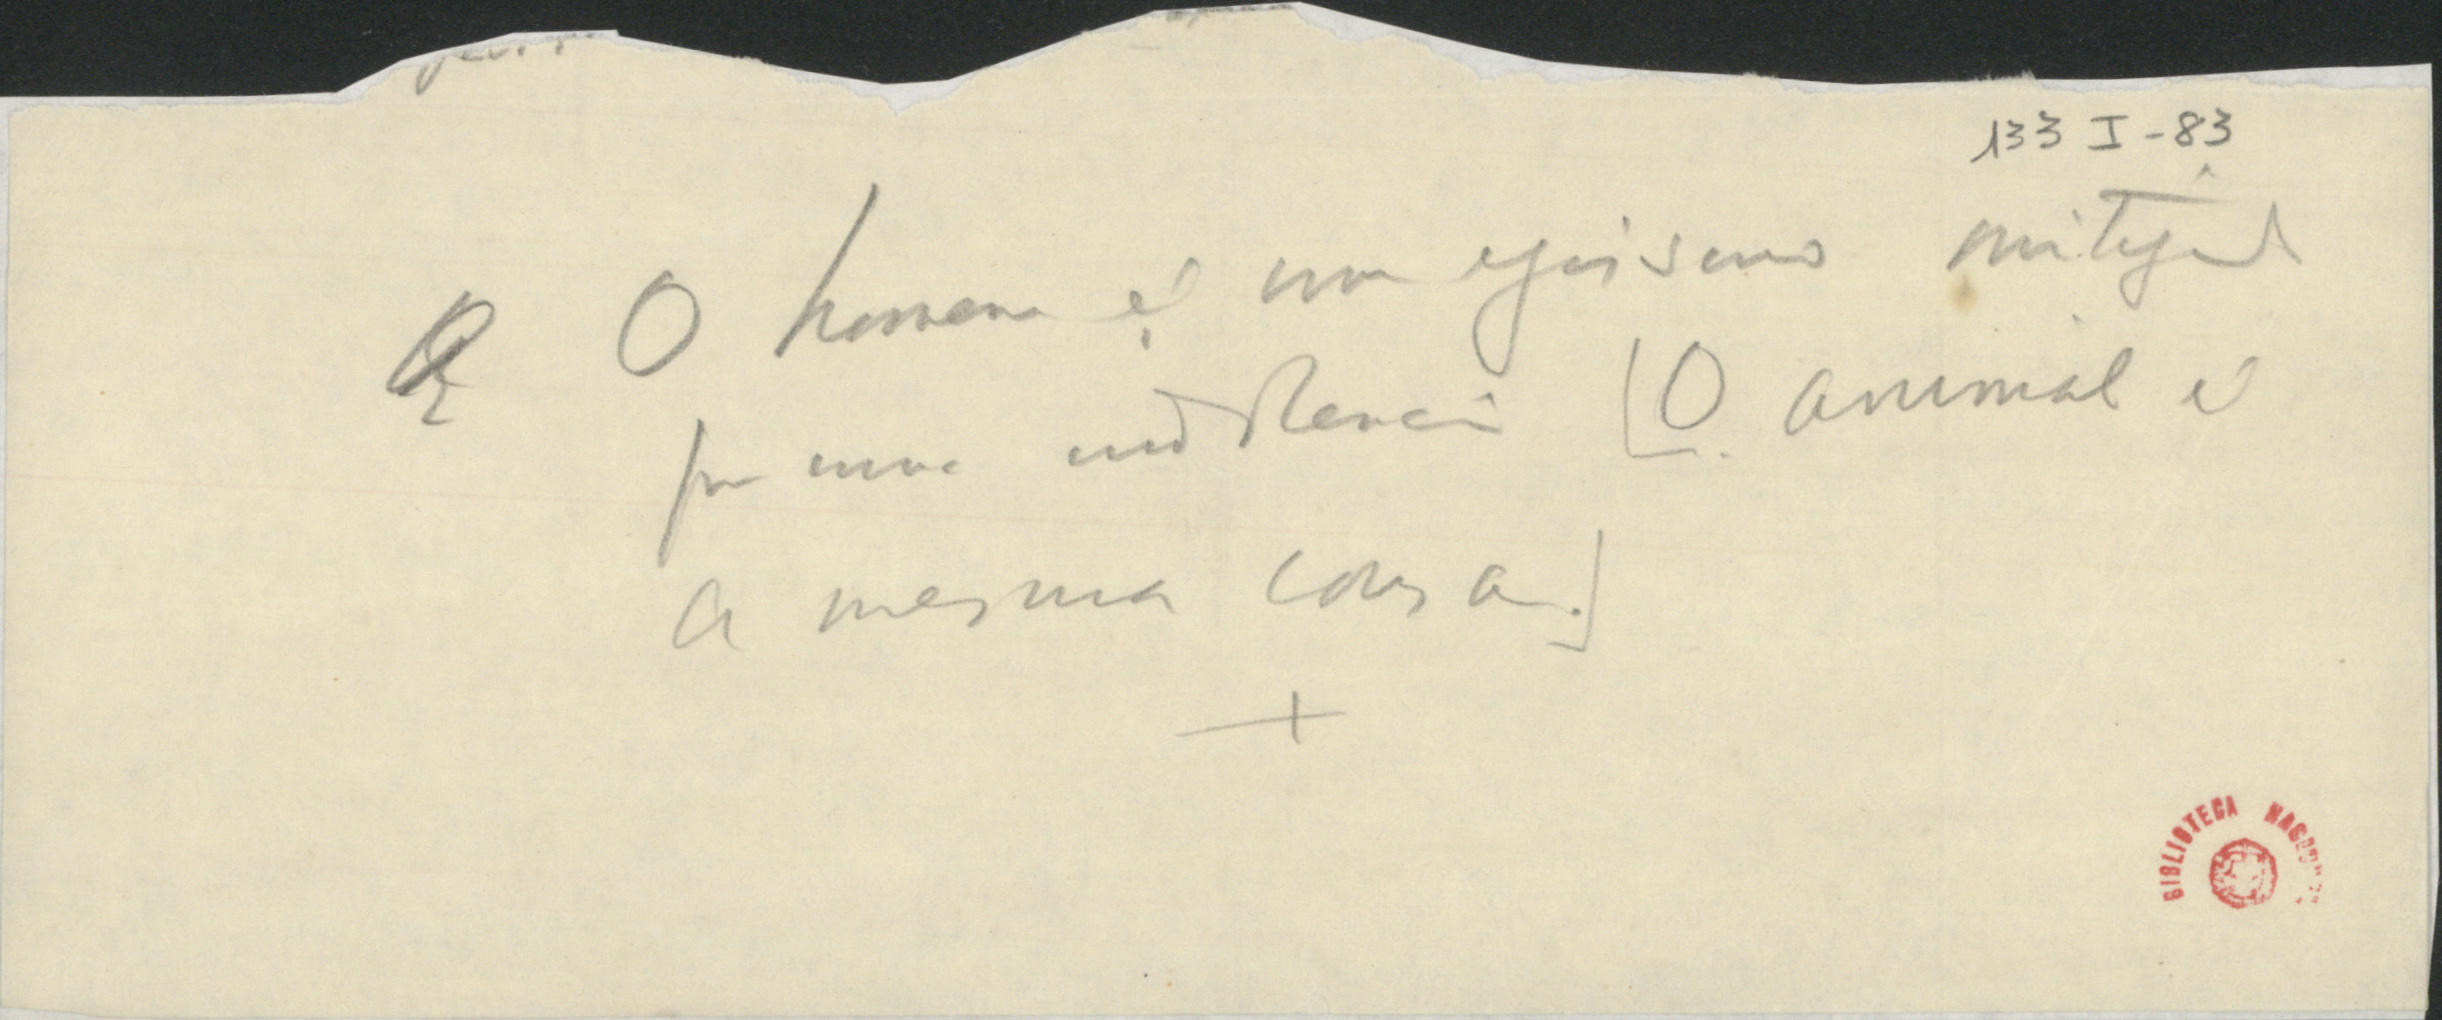 133 I-83
O homem é um egoismo mitigado
por uma indolencia [O animal é
a mesma cousa.]
+
BIBLIOTECA NACIONAL